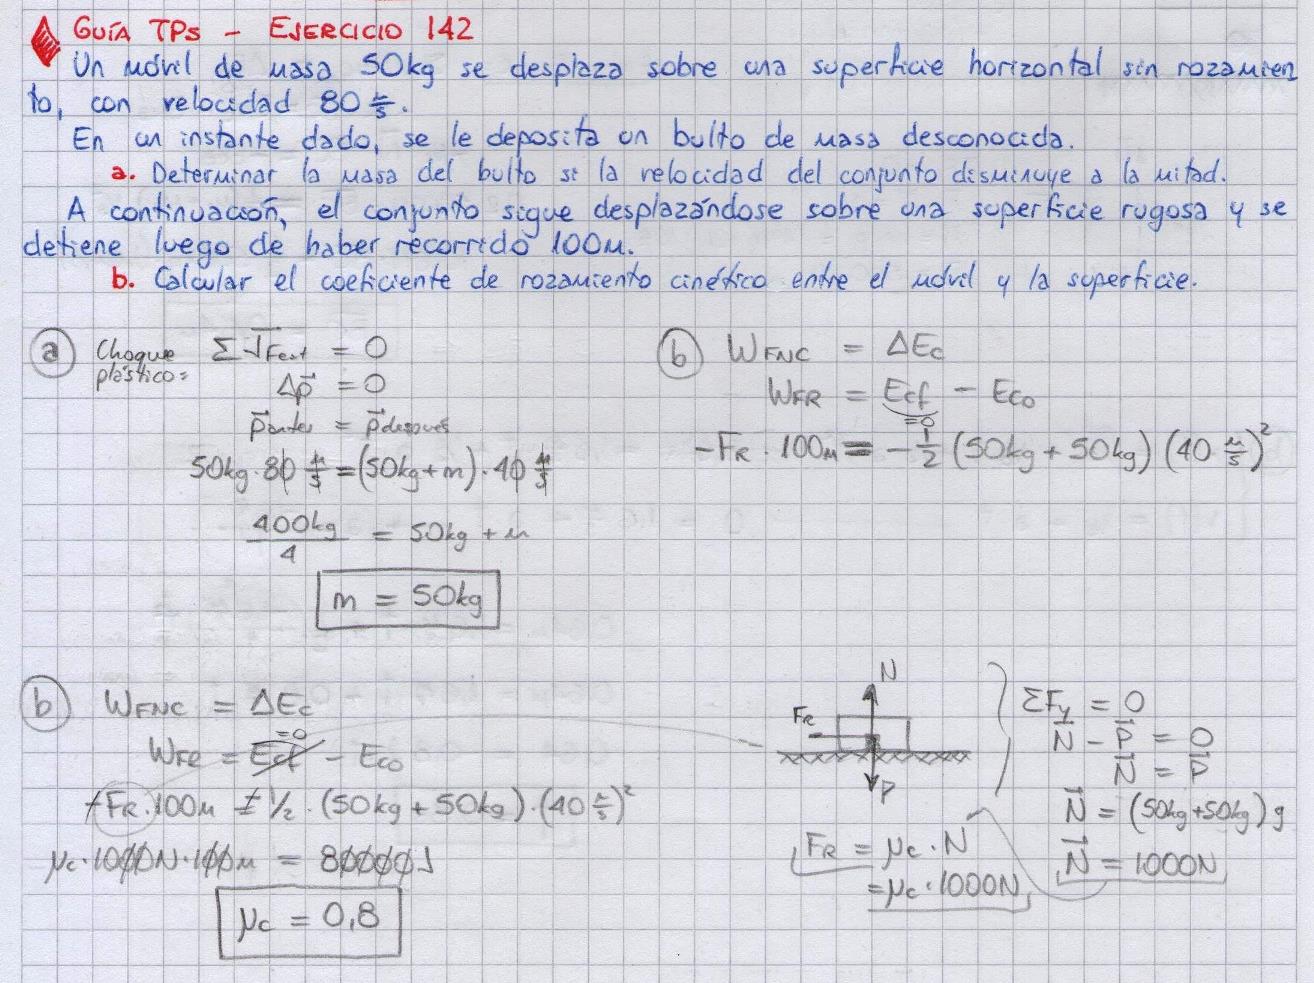 GUÍA TPs - EJERCICIO 142
Un móvil de masa 50kg se desplaza sobre una superficie horizontal sin rozamien
to, con velocidad 80 m/s.
En un instante dado, se le deposita un bulto de masa desconocida.
a. Determinar la masa del bulto si la velocidad del conjunto disminuye a la mitad.
A continuación, el conjunto sigue desplazándose sobre una superficie rugosa y se
detiene luego de haber recorrido 100m.
b. Calcular el coeficiente de rozamiento cinético entre el móvil y la superficie.
a Choque plástico: Σ J⃗Fext = 0
Δp⃗ = 0
p⃗antes = p⃗después
50kg · 80 m/s = (50kg + m) · 40 m/s
400kg/4 = 50kg + m
m = 50kg
b WFNC = ΔEc
WFR = Ecf - Eco
=0
-FR · 100m = -1/2 (50kg + 50kg) (40 m/s)²
b WFNC = ΔEc
=0
WFR = Ecf - Eco
-FR · 100m = 1/2 · (50kg + 50kg) · (40 m/s)²
μc · 1000N · 100m = 80000J
μc = 0,8
N
FR
P
FR = μc · N
= μc · 1000N
ΣFy = 0
N⃗ - P⃗ = 0
N⃗ = P⃗
N⃗ = (50kg + 50kg) g
N⃗ = 1000N